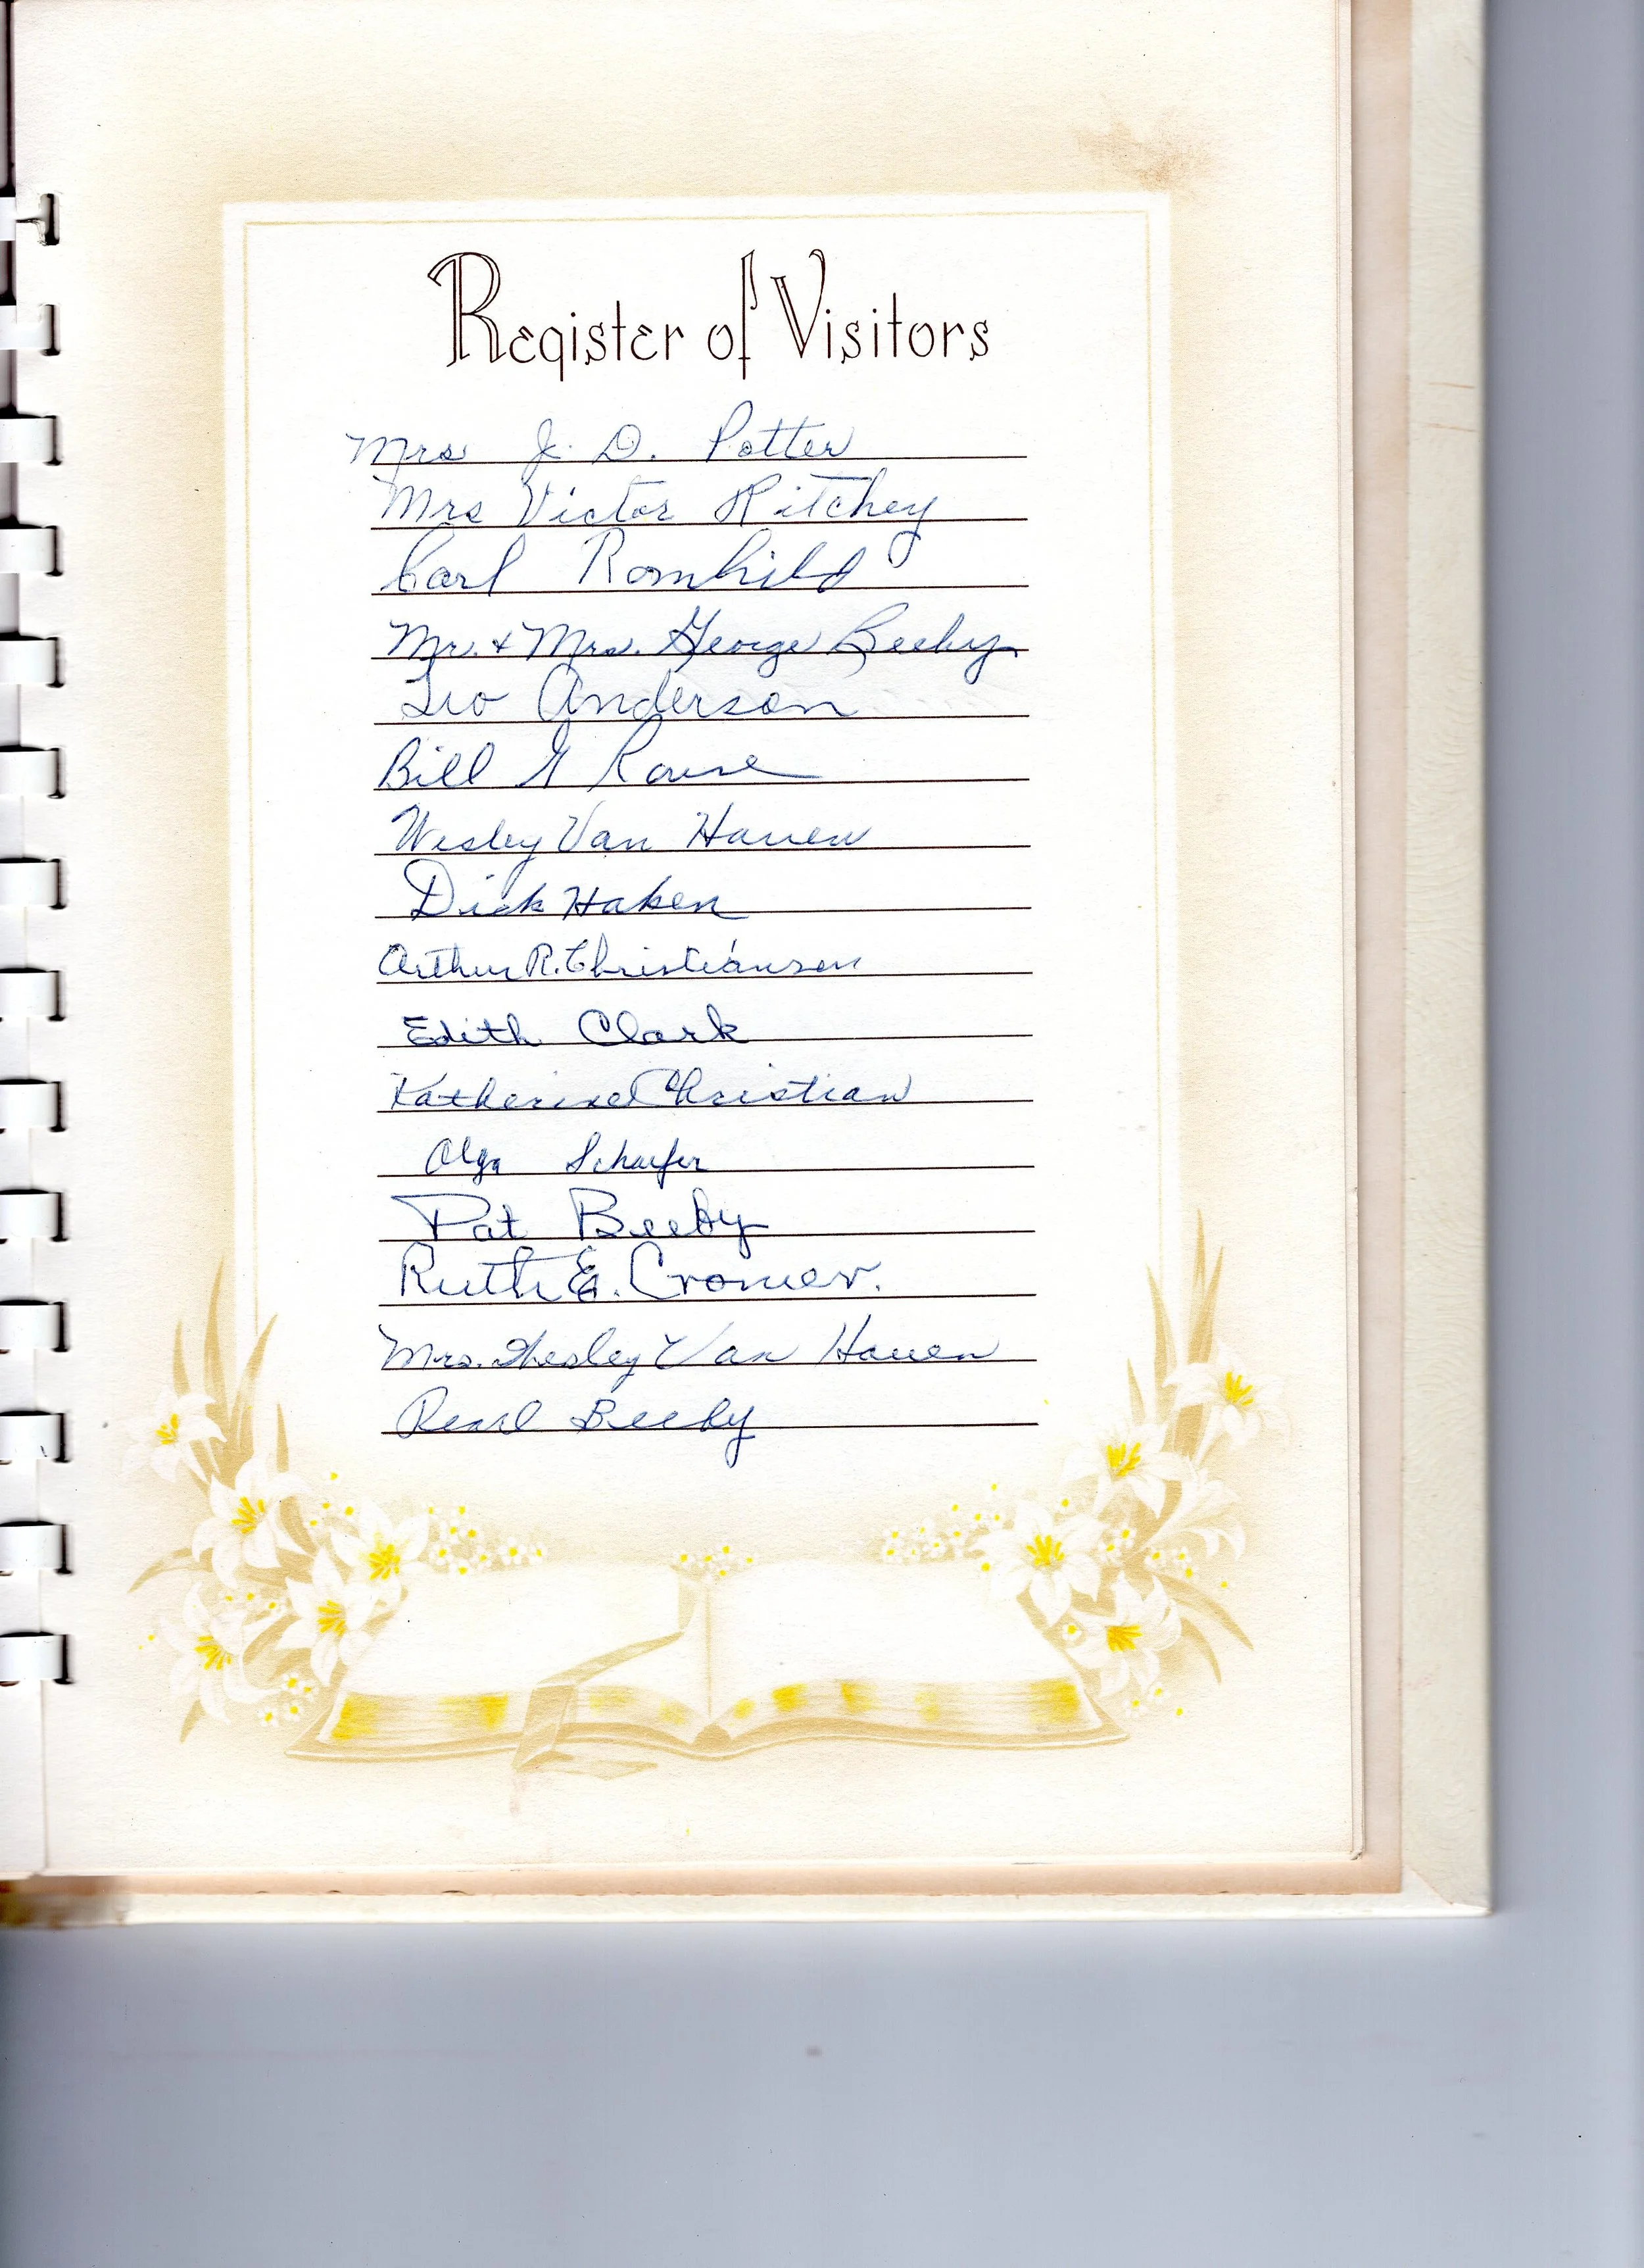 Register of Visitors
Mrs J. D. Potter
Mrs Victor Ritchey
Carl Romhild
Mr. & Mrs. George Beeby
Leo Anderson
Bill G
Wesley Van Hauen
Dick Haken
Arthur R. Christiansen
Edith Clark
Katherine Christian
Olga Schaefer
Pat Beeby
Ruth E. Cromer.
Mrs. Wesley Van Hauen
Pearl Beeby